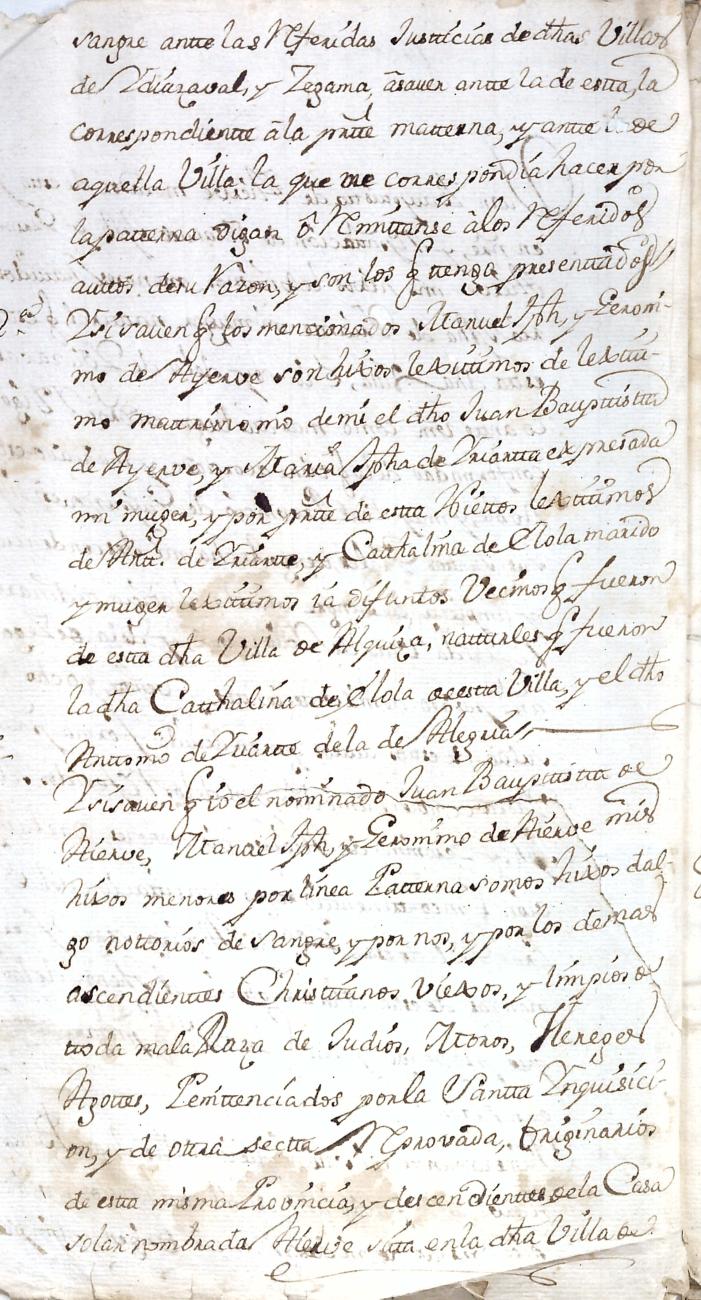 sangre antte las Referidas Justticias de dhas Villas
de Ydiazaval, y Zegama, âsaver antte la de estta, la
correspondientte âla prtte matterna, y antte la de
aquella Villa la que me correspondia hacer por
la patterna digan ô Remittanse âlos Referidos
auttos desu Razon, y son los q ttengo presenttados
2ª Ysi saven q los mencionados Manuel Jph, y Geroni-
mo de Ayerve son hixos lexittimos de lexitti-
mo mattrimonio demi el dho Juan Bapttistta
de Ayerve, y Maria Jpha de Yriartte expresada
mi muger, y por prtte de estta Niettos lexittimos
de Antt. de Yriartte, y Catthalina de Elola marido
y muger lexittimos ia difuntos Vecinos q fueron
de estta dha Villa de Alquiza, natturles q fueron
la dha Catthalina de Elola de estta Villa, y el dho
Anttonio de Yriartte dela de Alegria
Ysi saven q io el nominado Juan Bapttistta de
Aierve, Manuel Jph, y Geronimo de Aierve mis
hixos menores por linea Patterna somos hixos dal-
go nottorios de sangre, y por nos, y por los demas
ascendienttes Christtianos viexos, y limpios de
ttoda mala Raza de Judios, Moros, Hereges
Agottes, Penittenciados por la Santta Ynquisici-
on, y de ottra sectta Reprovada, Originarios
de estta misma Provincia, y descendienttes dela Casa
solar nombrada Aierve sitta en la dha Villa de